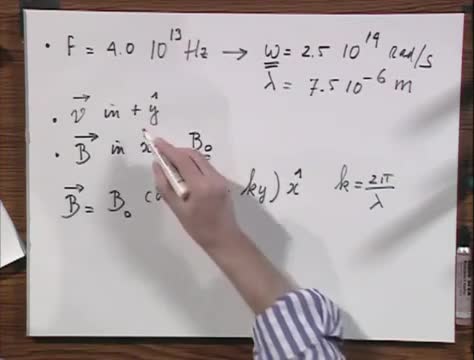 • F = 4.0 10¹³ Hz → ω = 2.5 10¹⁴ rad/s
λ = 7.5 10⁻⁶ m
• v⃗ in + ŷ
• B⃗ in x̂ B₀
B⃗ = B₀ ky) x̂ k = 2π/λ